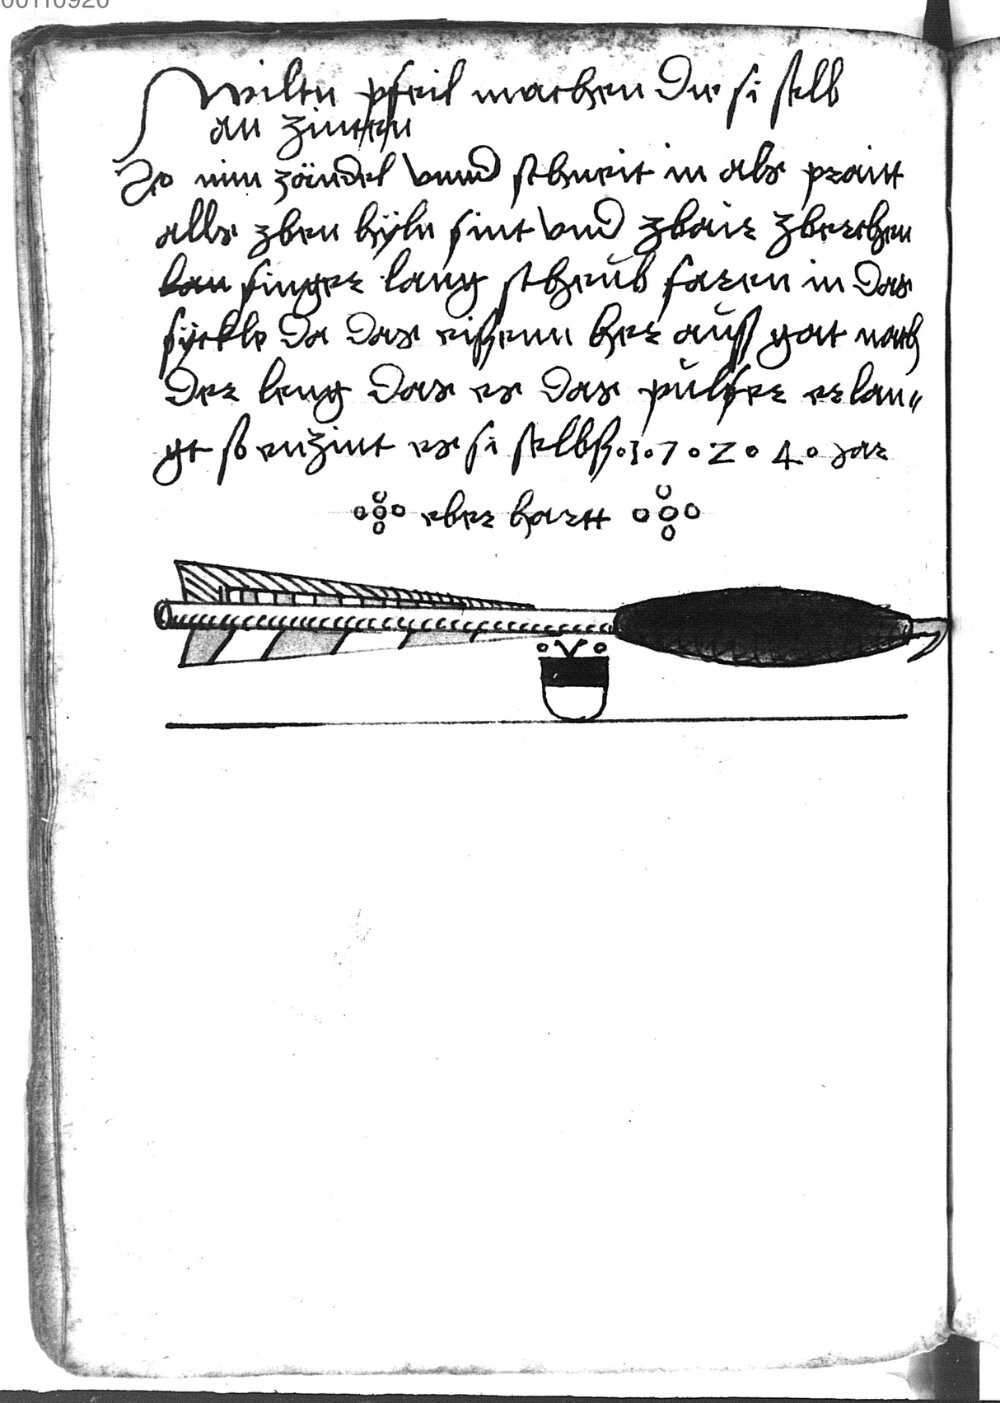 00110920
Wiltu pfeil machen die si selb
an zinten
So nim zändel vnnd schneit in als praitt
alls zben hÿln sint vnd zbair zberchen
finger lang schrub faren in das
sÿckle da das eissenn her auß gat nach
der leng das es das pulfer erlan„
gt so enzint es si selbß . 1 . 7 . 2 . 4 . Jar
eber hartt
V